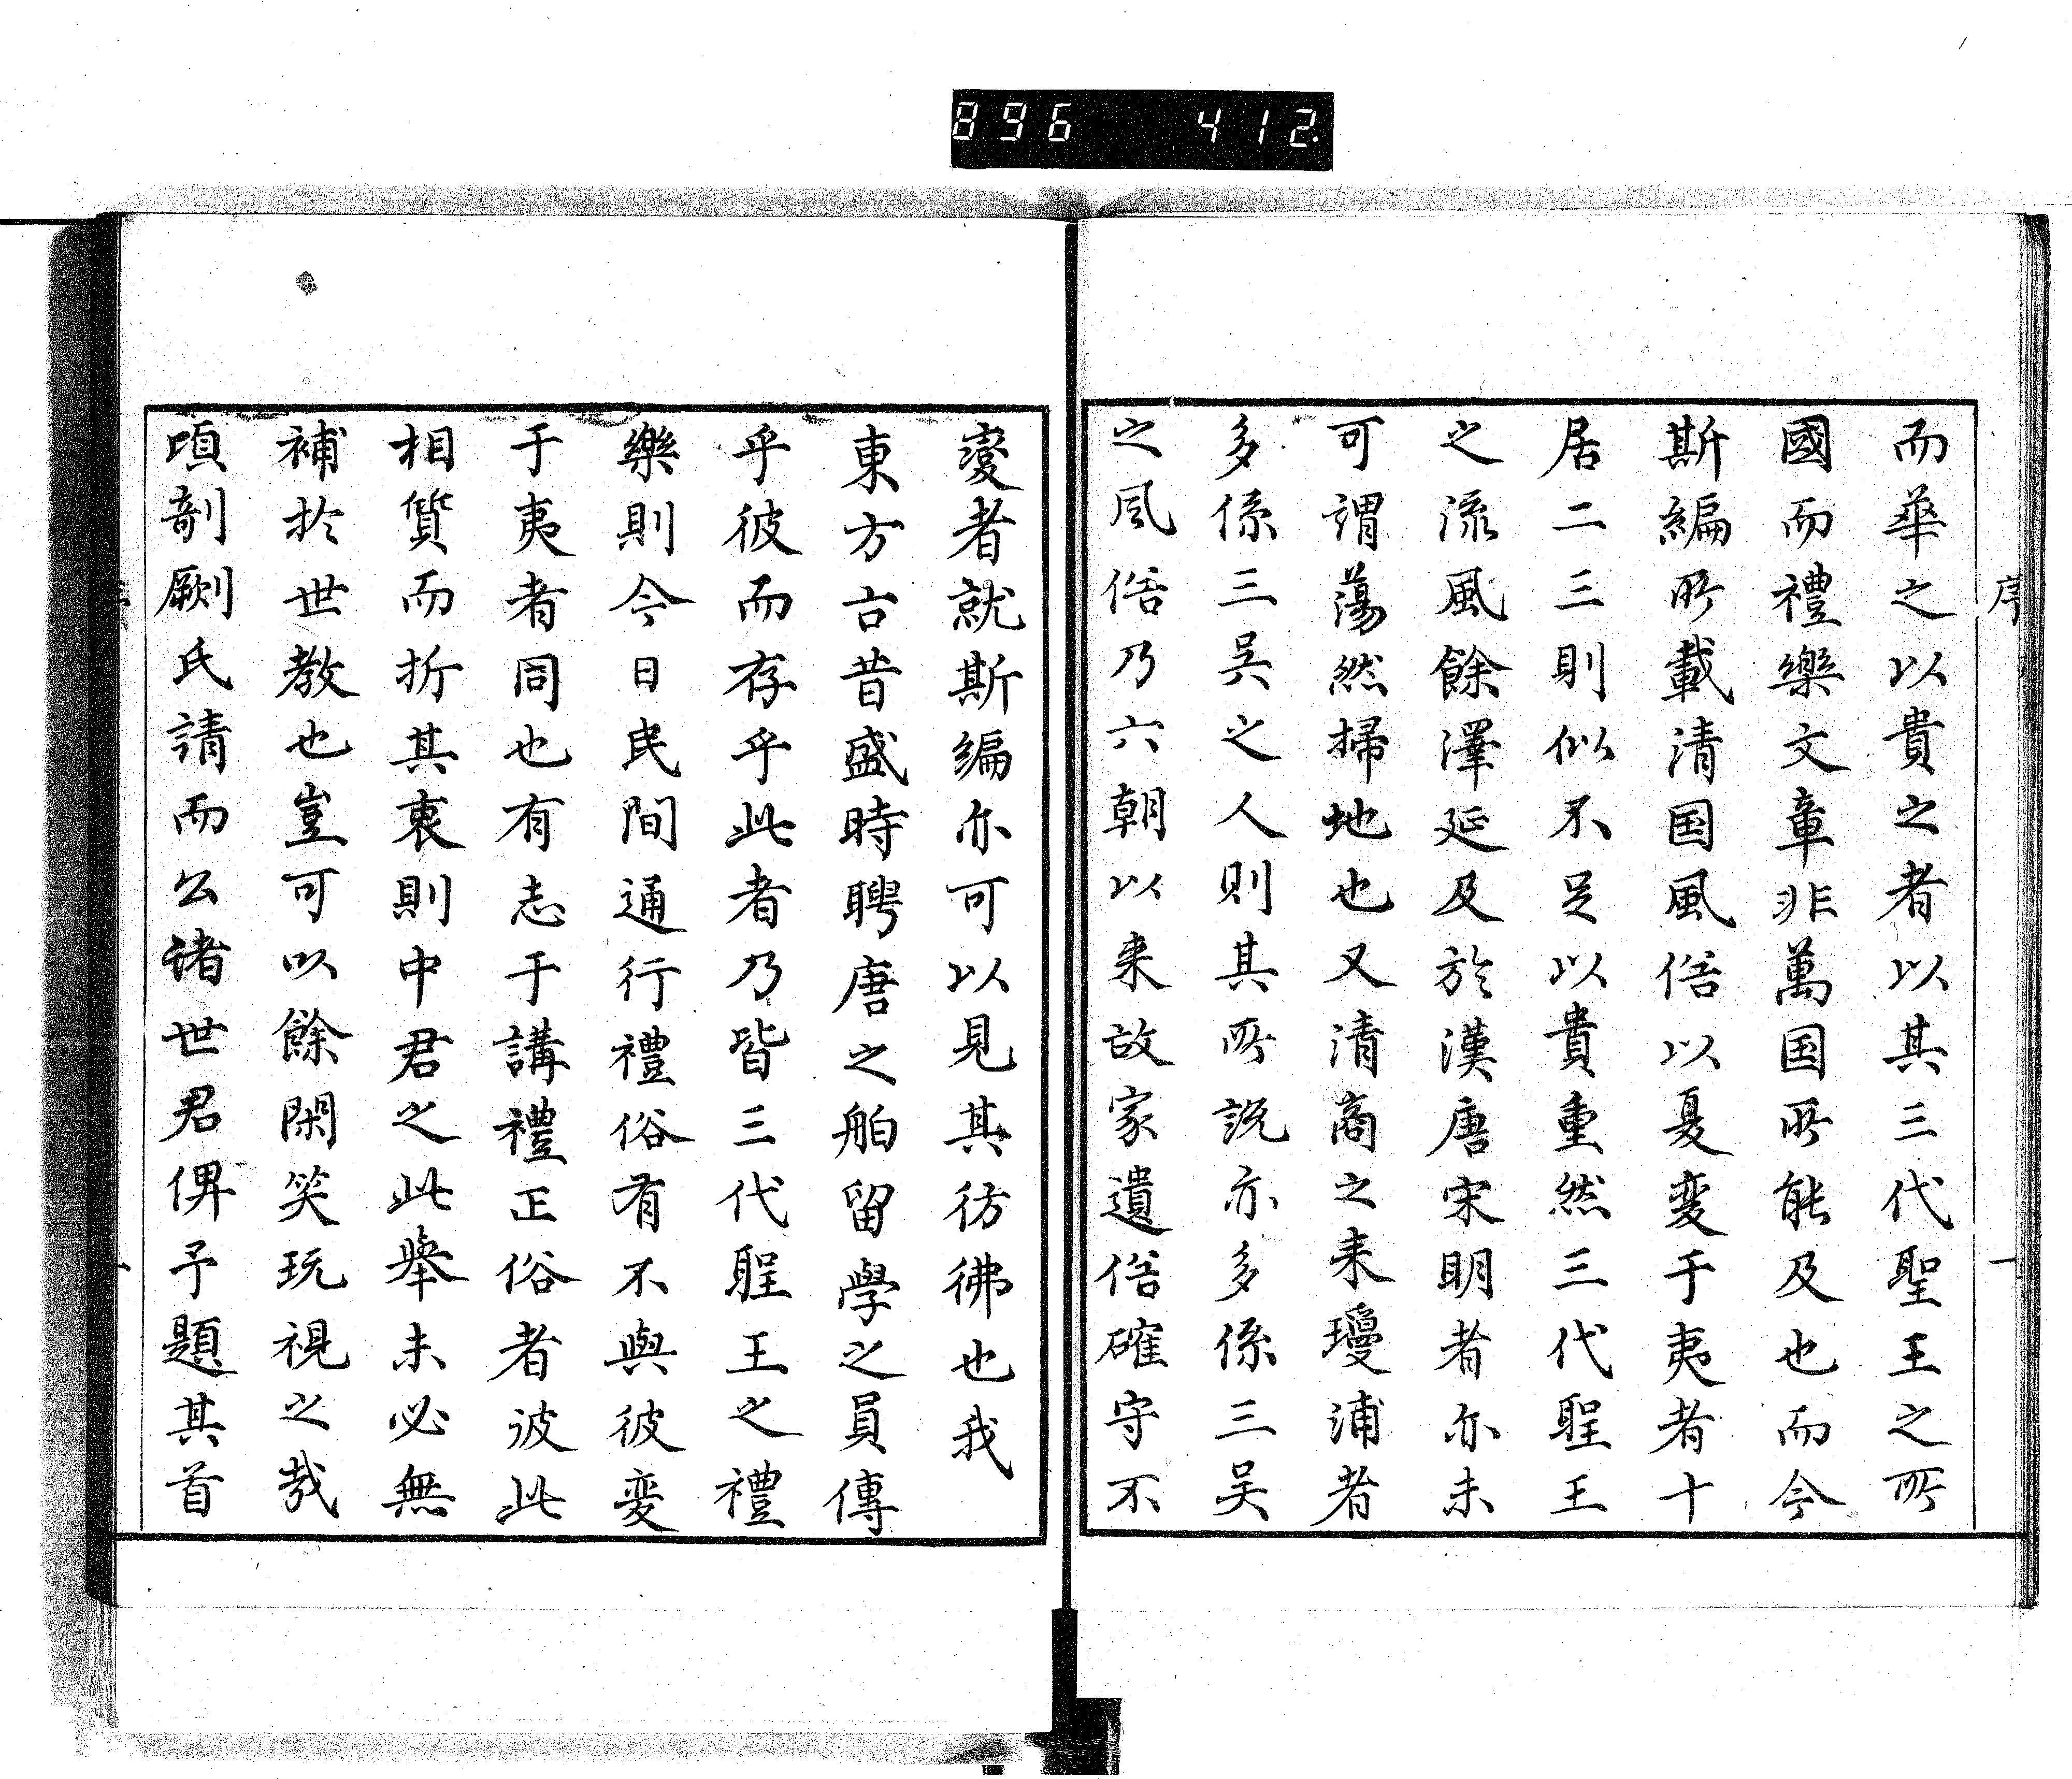 896 412
序
而華之以貴之者以其三代聖王之所
國而禮樂文章非萬国所能及也而今
斯編所載清国風俗以夏変于夷者十
居二三則似不足以貴重然三代聖王
之流風餘澤延及於漢唐宋明者亦未
可謂蕩然掃地也又清商之来瓊浦者
多係三吳之人則其所説亦多係三吴
之風俗乃六朝以来故家遺俗確守不
變者就斯編亦可以見其彷彿也我
東方古昔盛時聘唐之舶留學之員傳
乎彼而存乎此者乃皆三代聖王之禮
樂則今日民間通行禮俗有不與彼変
于夷者同也有志于講禮正俗者彼此
相質而折其衷則中君之此舉未必無
補於世教也豈可以餘閑笑玩視之哉
頃剞劂氏請而公诸世君俾予題其首